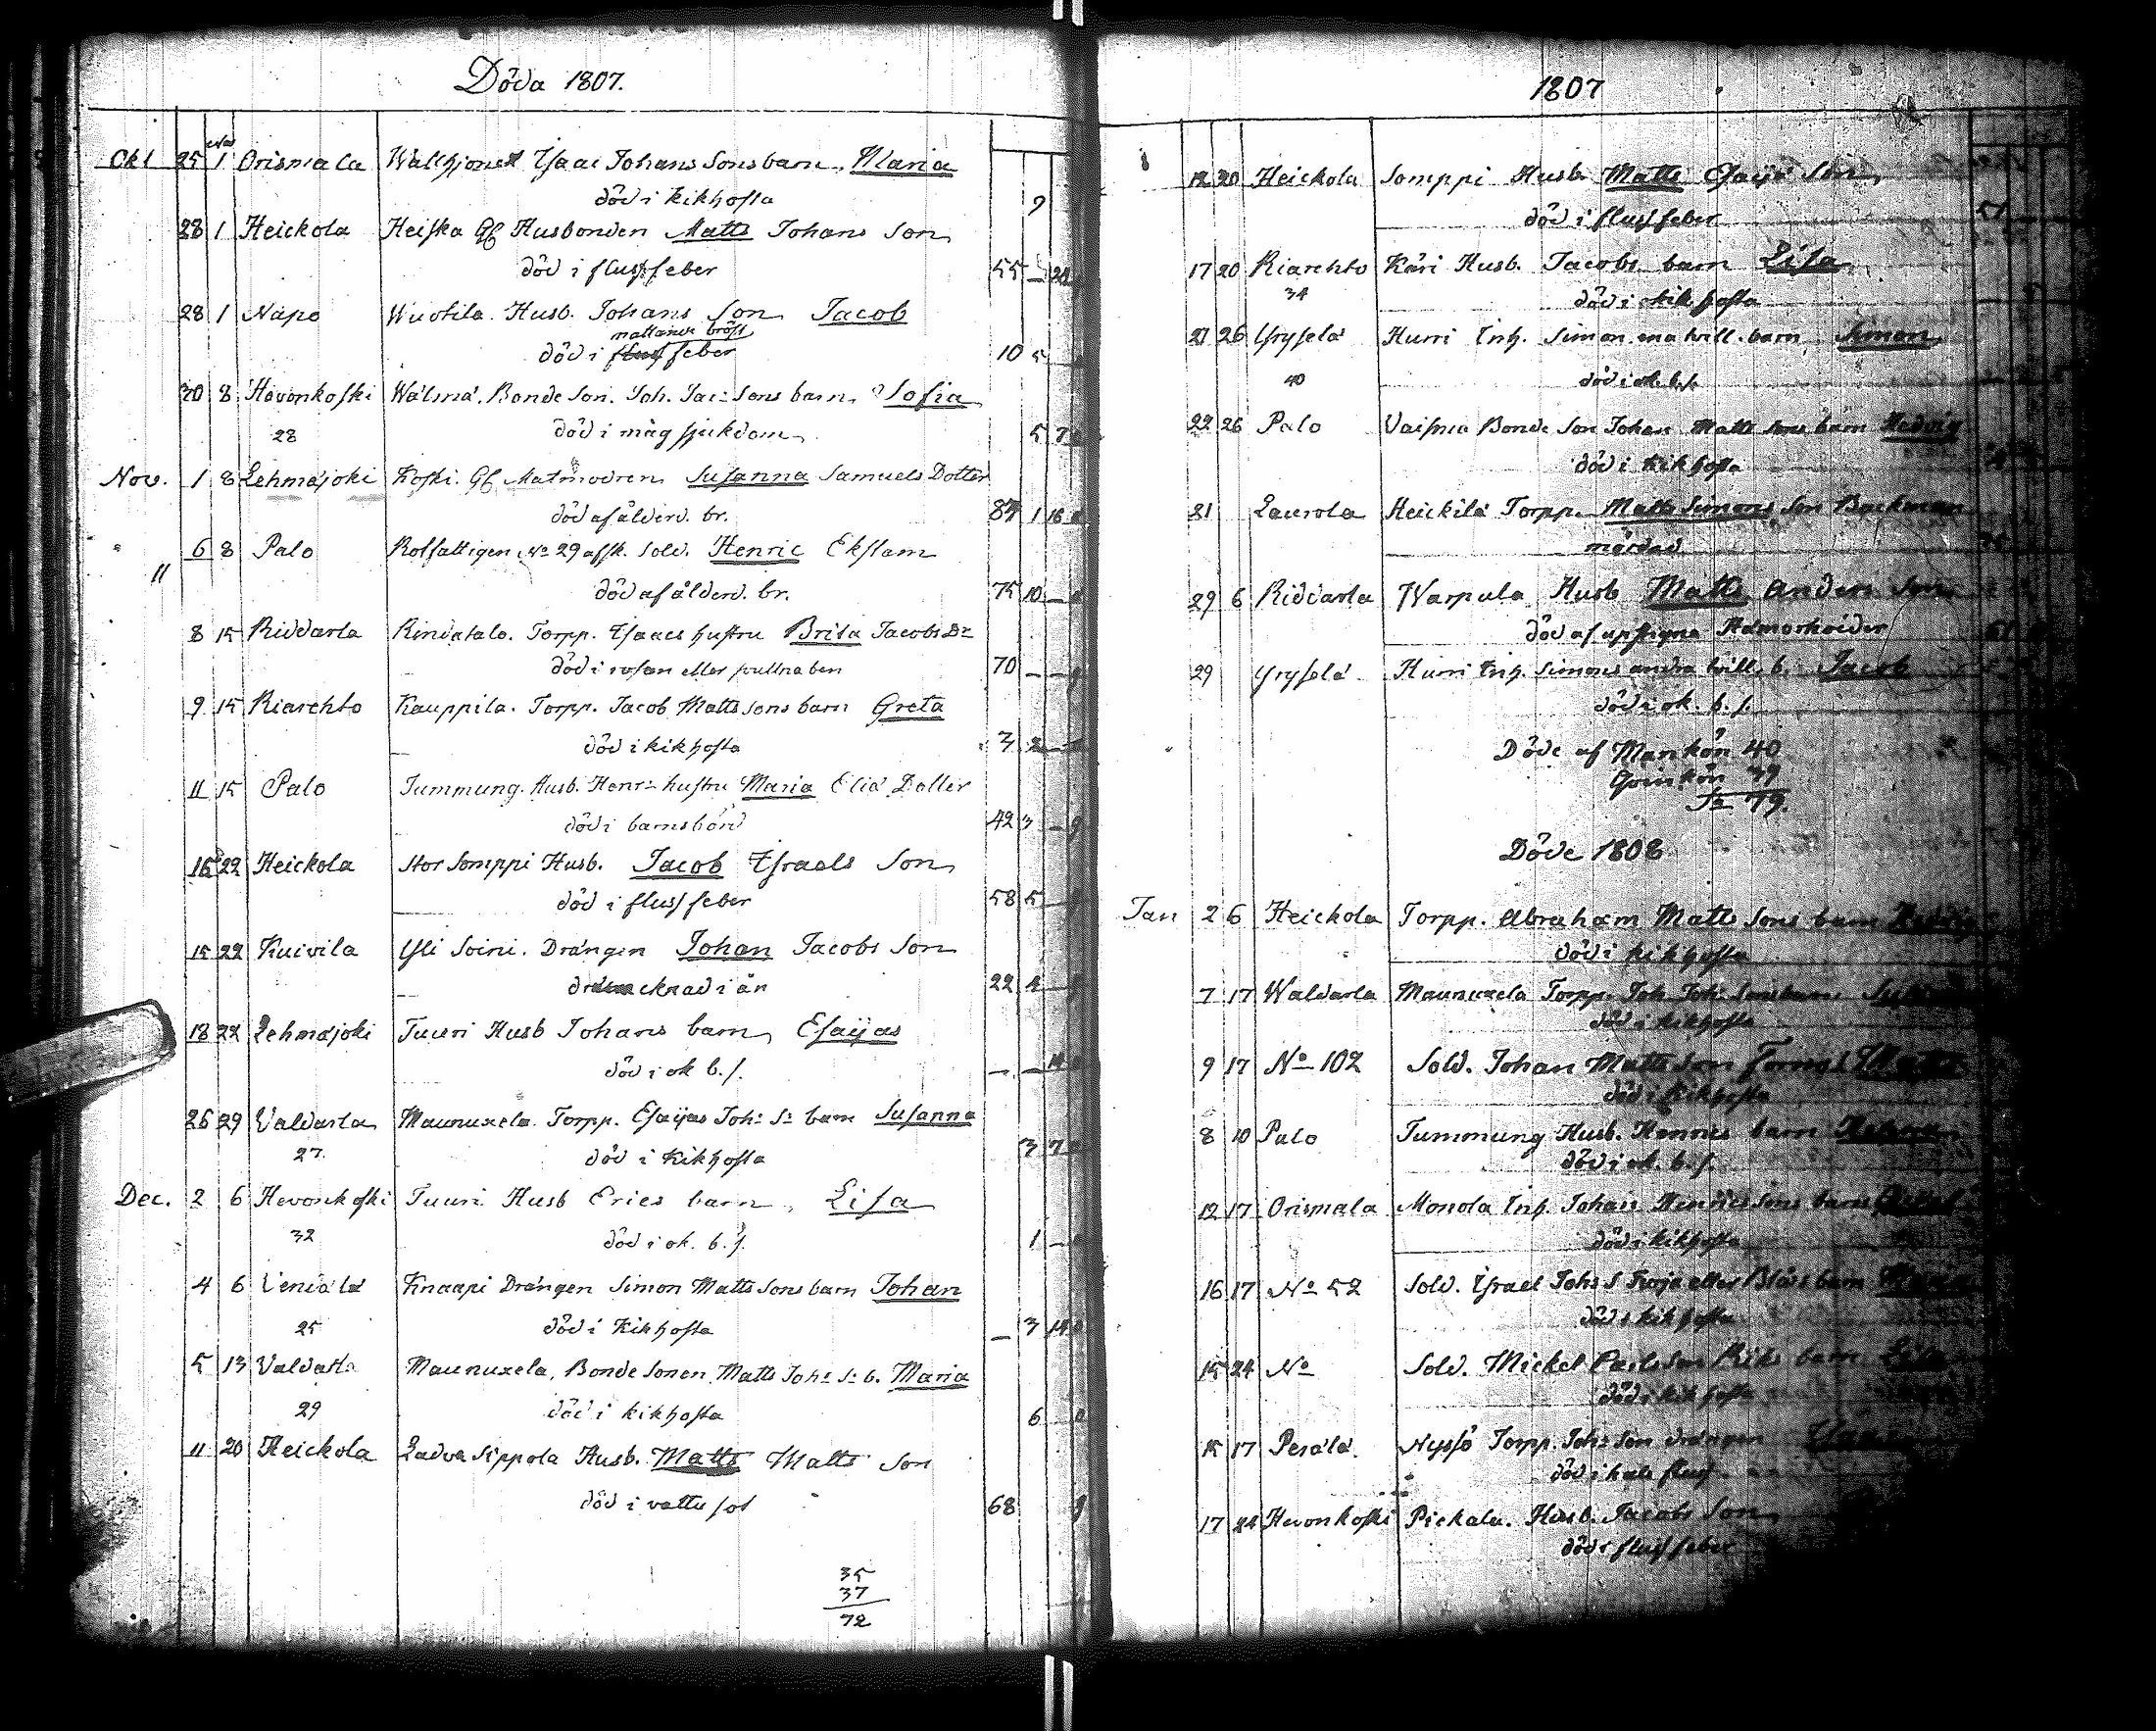 Döda 1807.
Okt 25 Nov 1 Orismala Wallhjonet Isaac Johans Sons barn, Maria
död i kikhosta 9
28 1 Heickola Heiska Gf Husbonden Matts Johans Son
död i flussfeber 55 – 24
28 1 Napo Wuotila. Husb. Johans Son Jacob
mattande bröst
död i flus feber 10 5
30 8 Hevonkoski Wälmä. Bonde Son. Joh. Jac: Sons barn, Sofia
28 död i mag sjukdom 5 7
Nov. 1 8 Lehmäjoki Koski. Gf Matmodren Susanna Samuels Dotter
död af ålderd. br. 87 1 16
" 6 8 Palo Rolfattigen No 29 afsk. Sold. Henric Ekstam
"
död af ålderd. br. 75 10 –
8 15 Riddarla Rindatalo. Torpp. Isaacs hustru Brita Jacobs Dr
död i rosen eller svullna ben 70 – –
9 15 Kiarehto Kauppila. Torpp. Jacob Matts sons barn Greta
död i kikhosta 3 2 –
11 15 Palo Tummung. Husb. Henr: hustru Maria Eliä Dotter
död i barnsbörd 42 3 –
15 22 Heickola Stor Somppi Husb. Jacob Israels Son
död i flussfeber 58 5
15 22 Kuivila Yli Soini. Drängen Johan Jacobs Son
drunknad i ån 22
18 22 Lehmäjoki Tuuri Husb Johans barn Esaijas
död i ok b. s. – – 14
26 29 Valdarla Maunuxela. Torpp. Esaijas Joh: S: barn Susanna
27. död i kikhosta 3 7
Dec. 2 6 Hevonkoski Tuuri Husb Erics barn, Lisa
32 död i ok. b. s. 1 –
4 6 Knaapi Drängen Simon Matts Sons barn Johan
25 död i kikhosta – 3 14
5 13 Valdarla Maunuxela, Bonde Sonen Matts Joh: S: b. Maria
29 död i kikhosta 6
11 20 Heickola Ladva Sippola Husb. Matts Matts Son
död i vattusot 68
35
37
72
1807
12 20 Heickola Somppi Husb Matts Esaijä Son
död i flussfeber 51
17 20 Kiarehto Käri Husb. Jacobs barn Lisa
34 död i kikhosta
21 26 Yryselä Hurri Inh. Simons ena tvill. barn Simon
40 död i ok. b. s.
22 26 Palo Vaismä Bonde Son Johan Matts Sons barn Hedvig
död i kikhosta
21 Laurola Heickilä Torpp. Matts Simons Son Backman
mördad
29 6 Riddarla Warpula Husb Matts Anders Son
död af upstigne Hämorhoider 61
29 Yryselä Hurri Inh. Simons andra tvill. b. Jacob
död i ok. b. s.
Döde af Mankön 40
Qvinkön 39
Sa 79.
Döde 1808
Jan 2 6 Heickola Torpp. Abraham Matts Sons barn Hedvig
död i kikhosta
7 17 Waldarla Maunuxela Torpp. Joh Joh: Sons barn
död i kikhosta
9 17 No 102 Sold. Johan Mattsson
död i kikhosta
8 10 Palo Tummung Husb. Henrics barn
död i ok. b. s.
12 17 Orismala Monola Inh. Johan Henrics Sons barn
död i kikhosta
16 17 No 52 Sold. Israel Johs S Froja eller Blåss barn
död i kikhosta
15 24 No Sold. Mickel Carlsson barn
död i kikhosta
15 17 Perälä. Nyssö Torpp. Joh: Son drängen
död i hals fluss
17 24 Hevonkoski Pickala. Husb. Jacobs Son
död i flussfeber